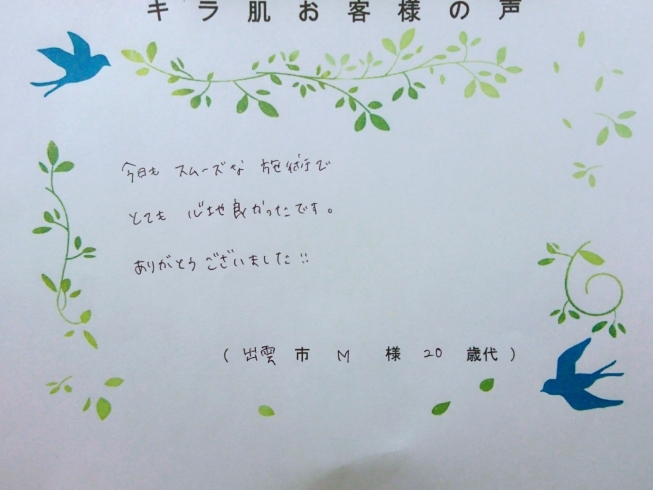 キラ肌お客様の声
今日も スムーズな 施術で
とても 心地良かったです。
ありがとうございました!!
(出雲 市 M 様 20 歳代)